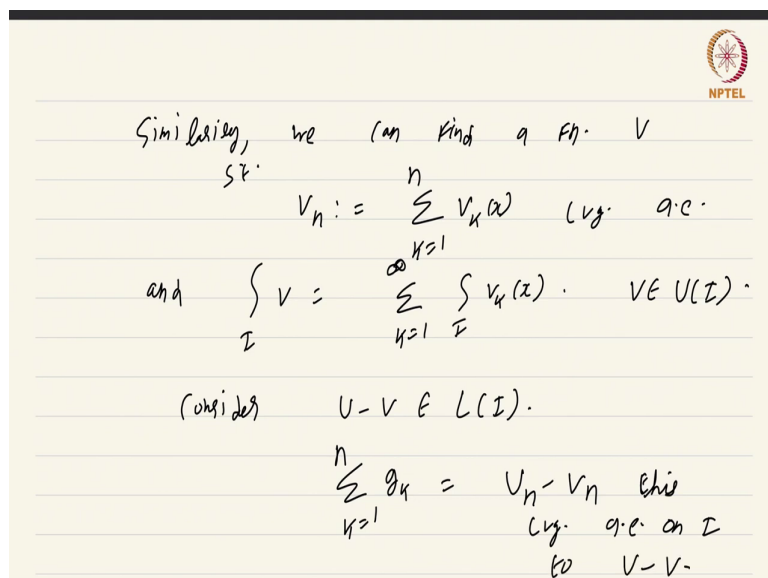 NPTEL
Similarly, we can find a fn. V
st.
n
V_n := Σ V_k(x) cvg. a.e.
k=1
∞
and ∫ V = Σ ∫ V_k(x). V ∈ U(I).
I k=1 I
Consider U - V ∈ L(I).
n
Σ g_k = U_n - V_n this
k=1 cvg. a.e. on I
to U - V.